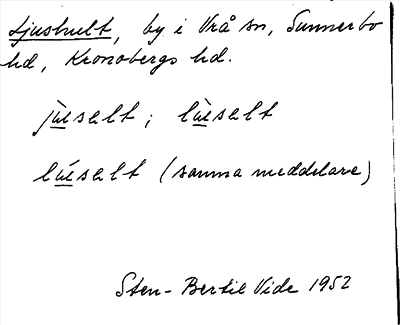 Ljushult, by i Vrå sn, Sunnerbo
hd, Kronobergs hd.
jùselt ; lùselt
lúselt (samma meddelare)
Sten-Bertil Vide 1952